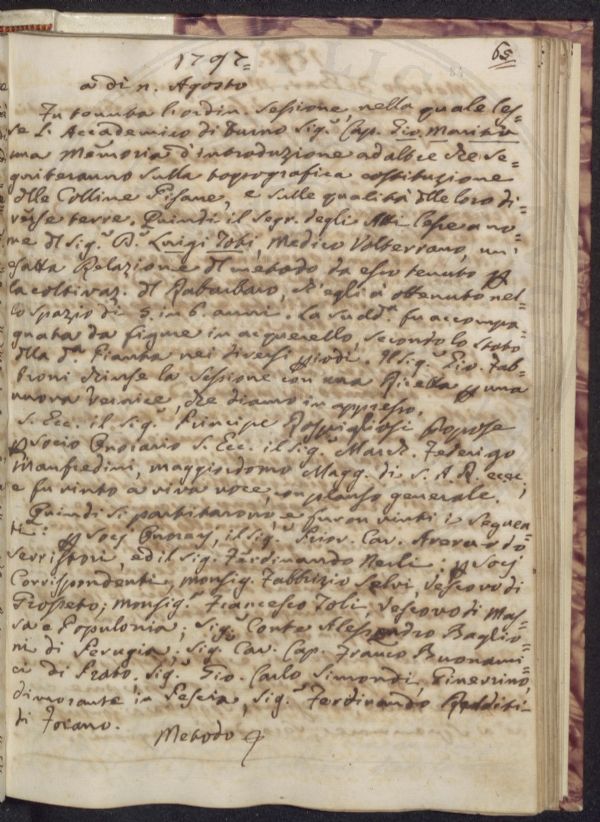 65
1797=
a di n. Agosto
Fu tenuta l'ordin. Sessione, nella quale les=
se l'Accademico di Turno Sig.e Cap. Gio. Mariti
una Memoria d'introduzione ad altre che se=
guiteranno sulla topografica costituzione
dlle Colline Pisane, e sulle qualità dlle loro di=
verse terre. Quindi il Segr. degli Atti lesse a no=
me dl Sig.e D.e Luigi Tobi, Medico Volterrano, un'
esatta Relazione dl metodo da esso tenuto p
la coltivaz. dl Rabarbaro, ch'egli à ottenuto nel=
lo spazio di 5. in 6. anni. La sudd.a fu accompa=
gnata da figure in acquerello, secondo lo stato
dlla d.a Pianta nei diversi piodi. Il Sig.e Gio. Fab=
broni chiuse la Sessione con una Ricetta p una
nuova Vernice, che diamo in appresso.
S. Ecc. il Sig.e Principe Rospigliosi propose
p Socio Onorario S. Ecc. il Sig.e March. Federigo
Manfredini, maggiordomo Magg. di S. A. R. ecc.,
e fu vinto a viva voce, con plauso generale.
Quindi si partitarono, e furon vinti i seguen=
ti: p Socj Onorarj, il Sig.e Prior. Cav. Averardo
Serristori, ed il Sig. Ferdinando Nerli; p Socj
Corrispondenti, Monsig. Fabbrizio Selvi, Vescovo di
Grosseto; Monsig.e Francesco Toli, Vescovo di Mas=
sa e Populonia; Sig.e Conte Alessandro Baglio=
ni di Perugia; Sig. Cav. Cap. Franco Buonami=
ci di Prato. Sig.e Gio. Carlo Simondi, Ginevrino,
dimorante in Pescia, Sig.e Ferdinando
di Focano.
Metodo